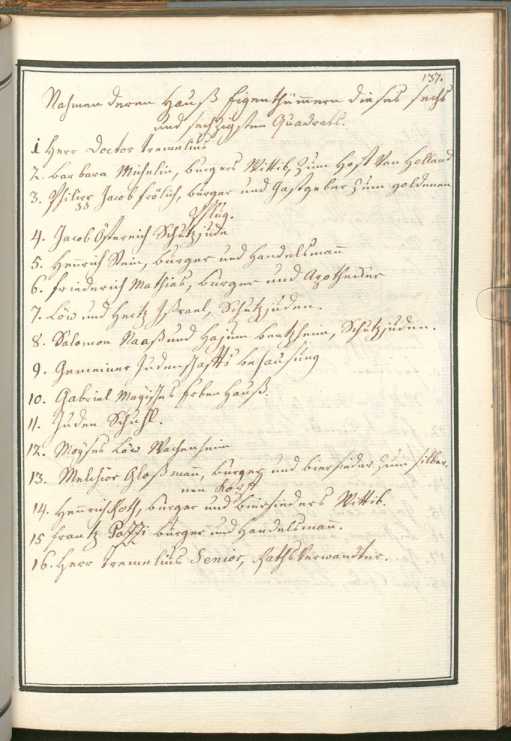 137.
Nahmen deren Hauß Eigenthümern dieses sechs
und sechzigsten Quadrats.
1 Herr Doctor Tremelius
2. barbara Michelin, burgers Wittib, zum Hoff Von Holland
3. Philipp Jacob frölich, burger und Gastgeber zum goldenen
Pflug.
4. Jacob Östereich Schutzjude
5. Henrich Stein, burger und Handelsmann
6. friederich Mathias, burger und Apothecker
7. Löw und Hertz Israel, Schutzjuden.
8. Salomon Naaß und Hajum bentzheim, Schutzjuden.
9. Gemeiner Judenschafts behausung
10. Gabriel Moyises Erben Hauß.
11. Juden Schuhl.
12. Moyses Löw Wachenheim
13. Melchior Gloßmann, burger und biersieder zum silber-
nen Kopf
14. Henrich Roth, burger und biersieders Wittib.
15 frantz Pozzi burger und Handelsmann.
16. Herr Tremelius Senior, Raths Verwandter.